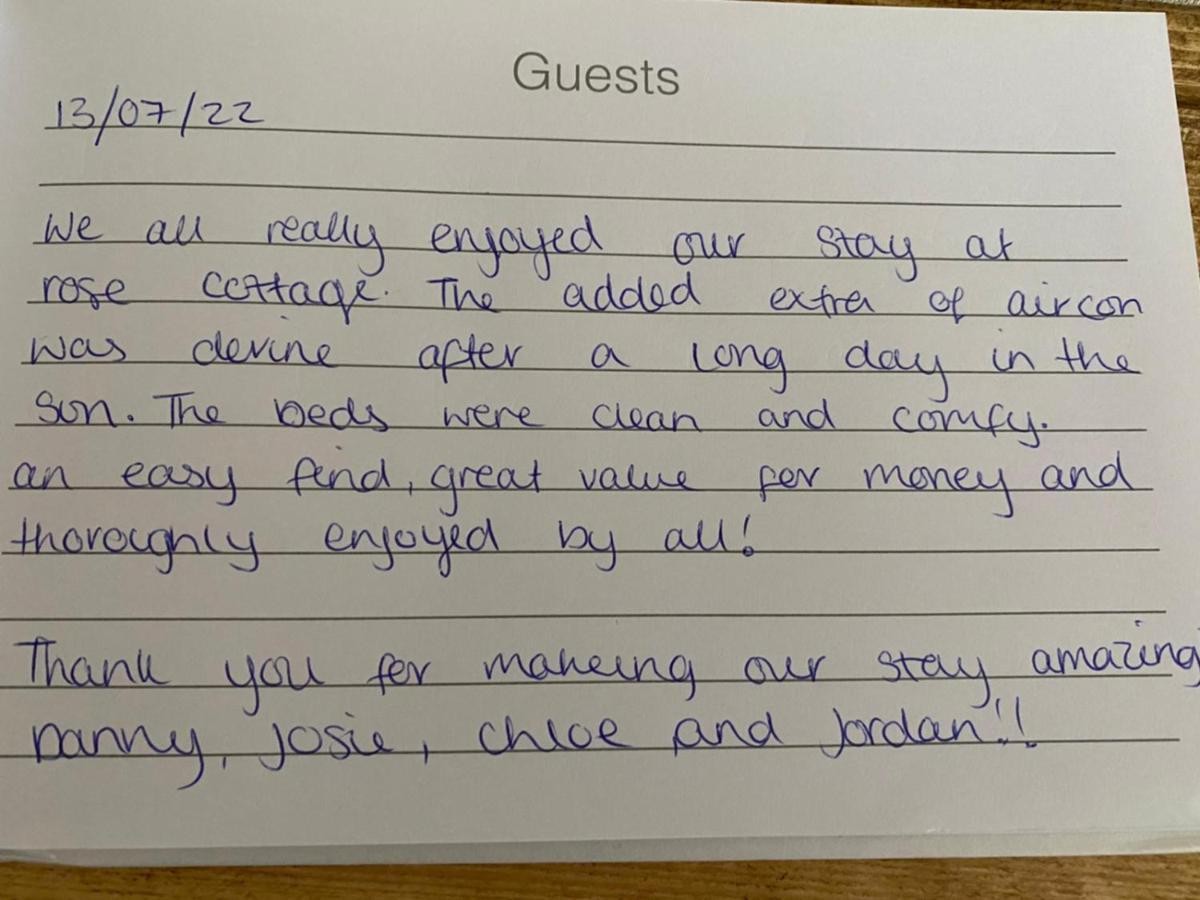 Guests
13/07/22
We all really enjoyed our stay at
rose cottage. The added extra of aircon
was devine after a long day in the
son. The beds were clean and comfy.
an easy find, great value for money and
thoroughly enjoyed by all!
Thank you for makeing our stay amazing
Danny, Josie, Chloe and Jordan!!